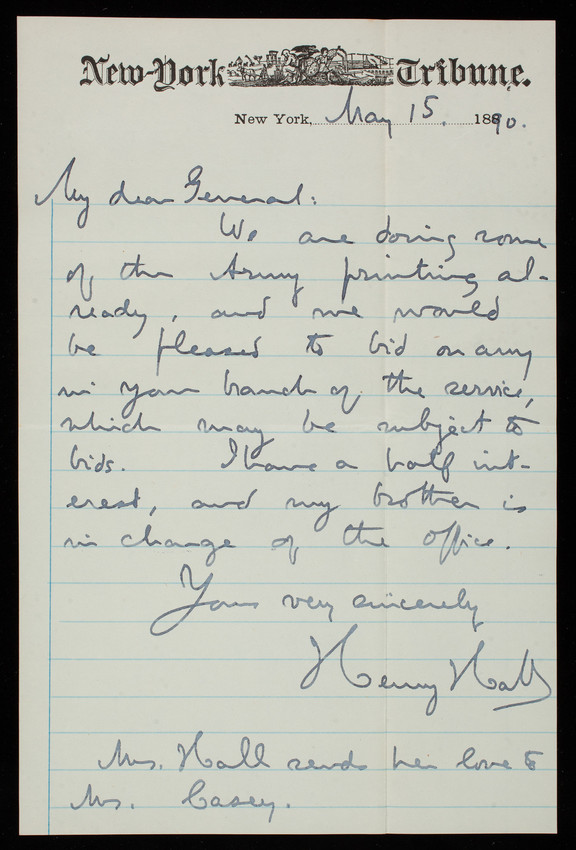 New-York Tribune.
New York, May 15. 1890.
My dear General:
We are doing some
of the Army printing al-
ready, and we would
be pleased to bid on any
in your branch of the service,
which may be subject to
bids. I have a half int-
erest, and my brother is
in charge of the office.
Yours very sincerely
Henry Hall
Mrs. Hall sends her love to
Mrs. Casey.